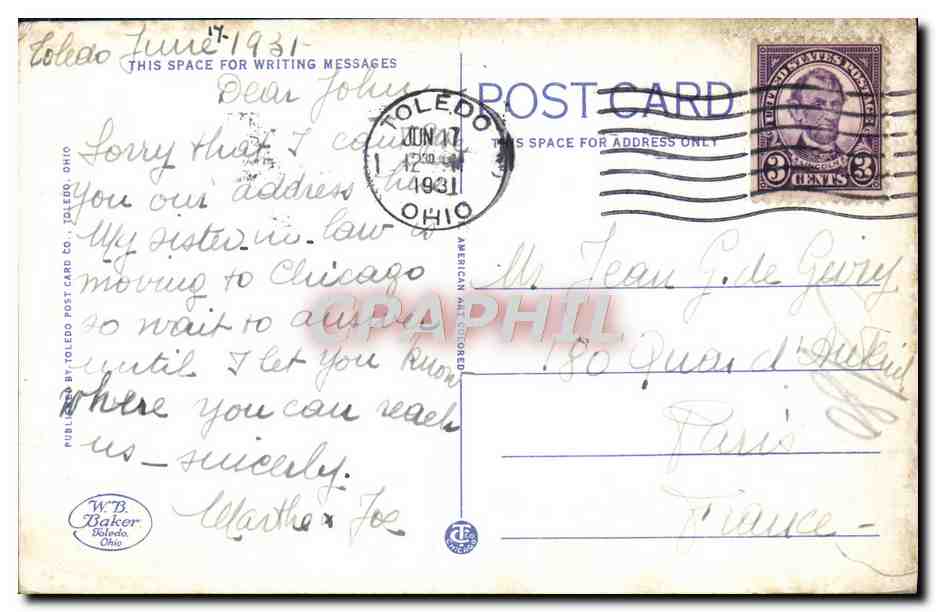 Toledo June 17- 1931-
THIS SPACE FOR WRITING MESSAGES
Dear John
Sorry that I can
you our address
My sister-in-law is
moving to Chicago
so wait to answer
until I let you know
where you can reach
us - sincerely.
Marthe x Joe
W.B.
Baker
Toledo,
Ohio
PUBLISHED BY TOLEDO POST CARD CO., TOLEDO, OHIO
AMERICAN ART COLORED
CHICAGO
POST CARD
THIS SPACE FOR ADDRESS ONLY
TOLEDO
JUN 17
12
1931
OHIO
UNITED STATES POSTAGE
LINCOLN
3 CENTS 3
Mr Jean G. de Givry
180 Quai d'Auteuil
Paris
France-
CPAPHIL